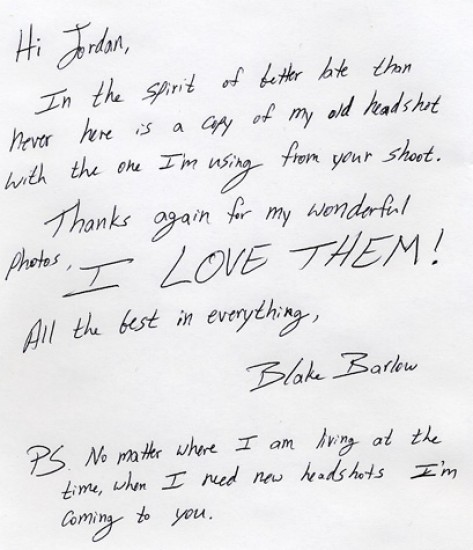 Hi Jordan,
In the spirit of better late than
never here is a copy of my old headshot
with the one I'm using from your shoot.
Thanks again for my wonderful
photos, I LOVE THEM!
All the best in everything,
Blake Barlow
PS. No matter where I am living at the
time, when I need new headshots I'm
coming to you.